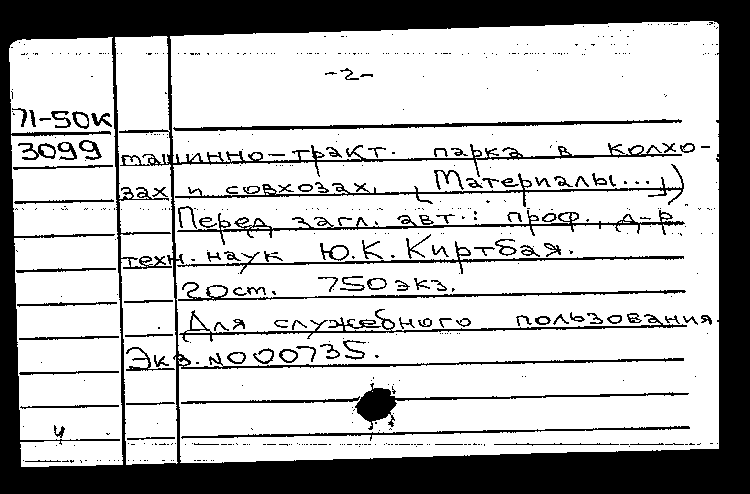 -2-
71-50к
3099
машинно-тракт. парка в колхо-
зах и совхозах. (Материалы...)
Перед загл. авт.: проф., д-р
техн. наук Ю.К. Киртбая.
20 ст. 750 экз.
Для служебного пользования.
Экз. N000735.
4